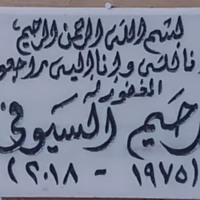 بسم الله الرحمن الرحيم
إنا لله وإنا إليه راجعون
المغفور له
رحيم السيوفي
(١٩٧٥ - ٢٠١٨)